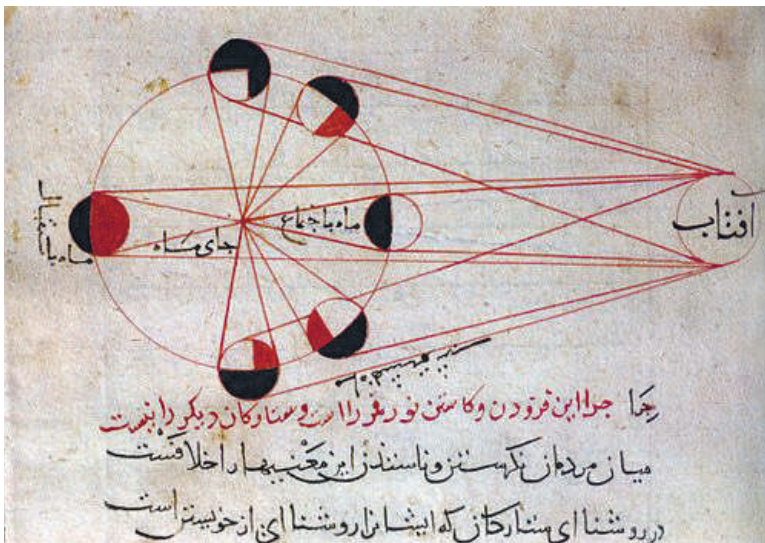 آفتاب
ماه باجتماع
جای ماه
ماه باستقبال
چرا این فزودن و کاستن نور قمر را است و ستارکان دیکر را نیست
میان مردمان نکرستن و ناسندر این معنیها را خلافست
در روشنای ستارکان که ایشانرا روشنای از خویشتن است